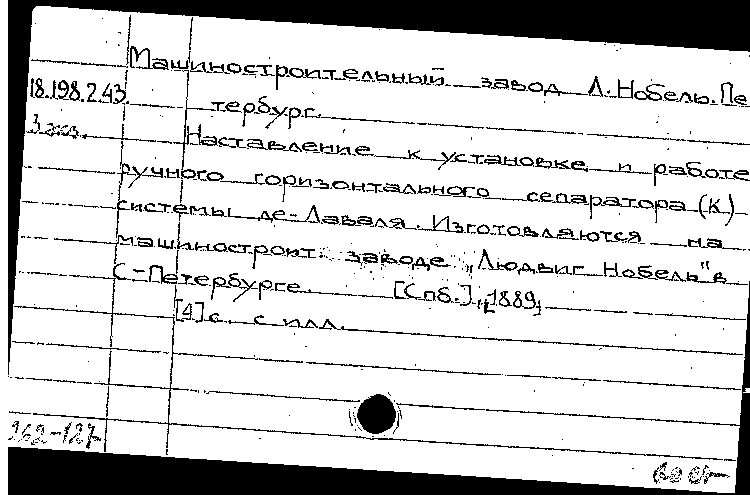 Машиностроительный завод Л. Нобель. Пе
18.198.2.43.
тербург.
3 экз.
Наставление к установке и работе
ручного горизонтального сепаратора (К)
системы де-Лаваля. Изготовляются на
машиностроит. заводе "Людвиг Нобель" в
С-Петербурге. [Спб.], [1889]
[4] с. с илл.
162-127